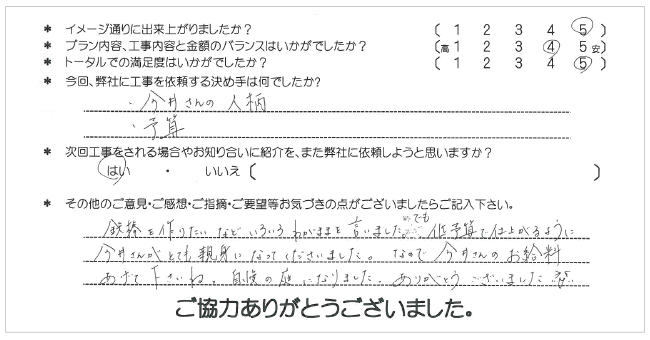 * イメージ通りに出来上がりましたか? ( 1 2 3 4 5 )
* プラン内容、工事内容と金額のバランスはいかがでしたか? (高 1 2 3 4 5 安)
* トータルでの満足度はいかがでしたか? ( 1 2 3 4 5 )
* 今回、弊社に工事を依頼する決め手は何でしたか?
・今井さんの人柄
・予算
* 次回工事をされる場合やお知り合いに紹介を、また弊社に依頼しようと思いますか?
はい ・ いいえ ( )
* その他のご意見・ご感想・ご指摘・ご要望等お気づきの点がございましたらご記入下さい。
鉄棒を作りたいなどいろいろわがままを言いました。でも 低予算で仕上がるように
今井さんがとても親身になってくださいました。なので今井さんのお給料
あげて下さいね。自慢の庭になりました。ありがとうございました
ご協力ありがとうございました。